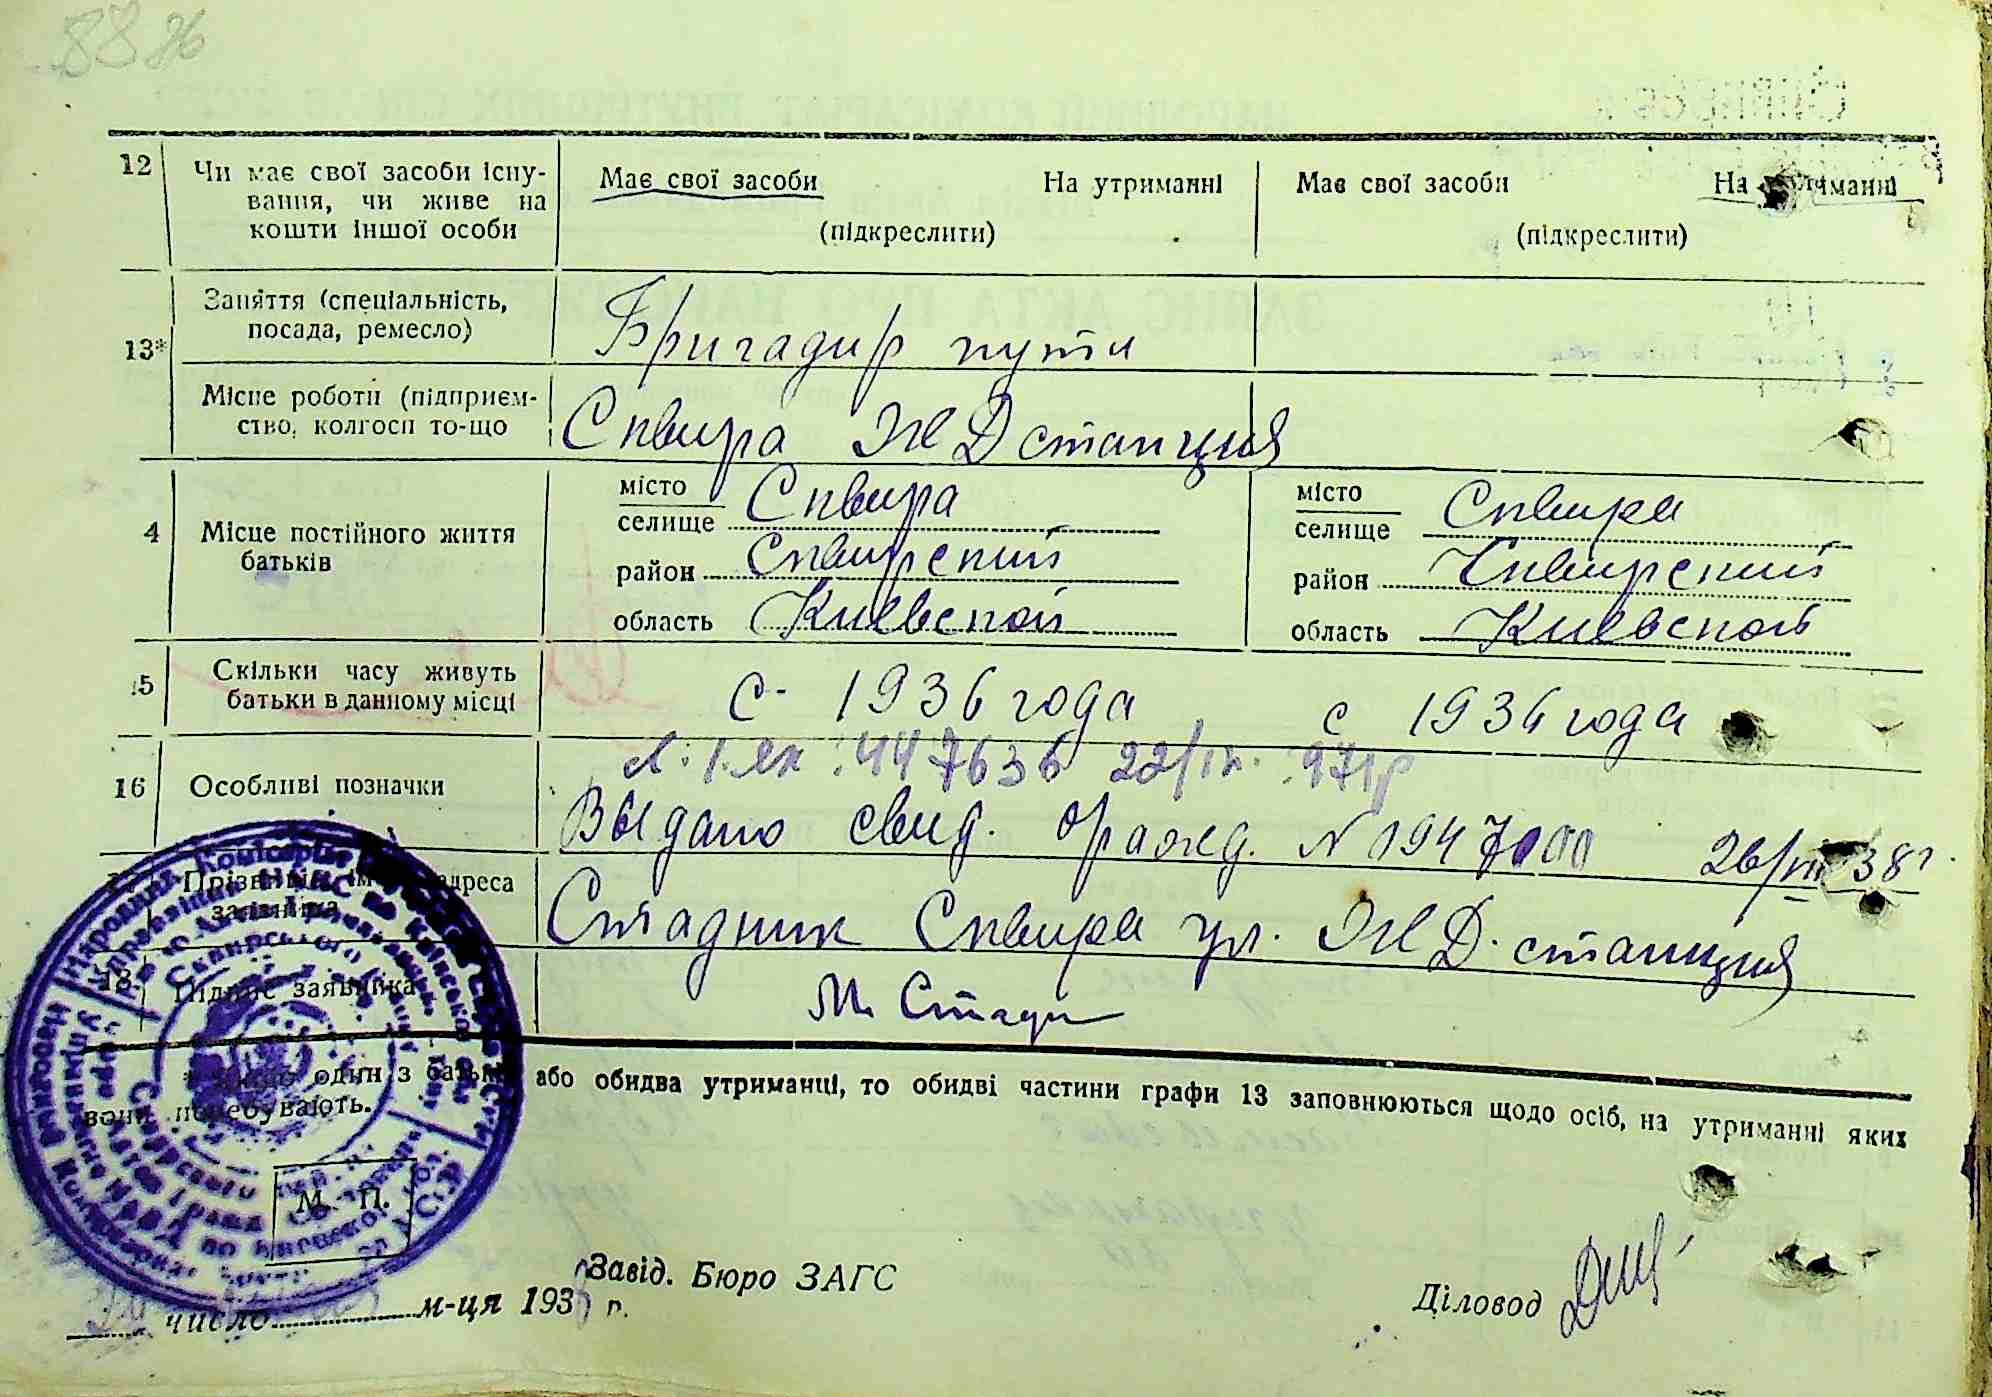 12 Чи має свої засоби існу-
вання, чи живе на
кошти іншої особи
Має свої засоби На утриманні
(підкреслити)
Має свої засоби На утриманні
(підкреслити)
13* Заняття (спеціальність,
посада, ремесло)
Бригадир пути
Місце роботи (підприєм-
ство, колгосп то-що
Сквира ЖД станция
4 Місце постійного життя
батьків
місто
селище Сквира
район Сквирский
область Киевской
місто
селище Сквира
район Сквирский
область Киевской
5 Скільки часу живуть
батьки в данному місці
с 1936 года с 1936 года
16 Особливі позначки
447636 22/
Выдано свид. о рожд. N 1947000 26/III 38 г.
адреса
заявника
Стадник Сквира ул. ЖД. станция
18. Підпис заявника
М Стадн
* один з батьків або обидва утриманці, то обидві частини графи 13 заповнюються щодо осіб, на утриманні яких
вони перебувають.
М. П.
Завід. Бюро ЗАГС
число м-ця 1938 р.
Діловод